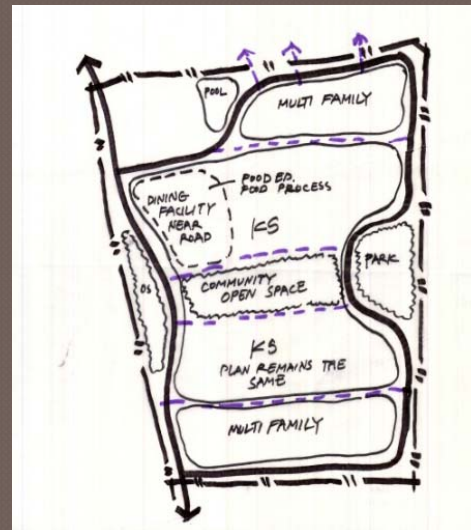 POOL
MULTI FAMILY
FOOD ED.
FOOD PROCESS
DINING
FACILITY
NEAR
ROAD
KS
PARK
OS
COMMUNITY
OPEN SPACE
KS
PLAN REMAINS THE
SAME
MULTI FAMILY